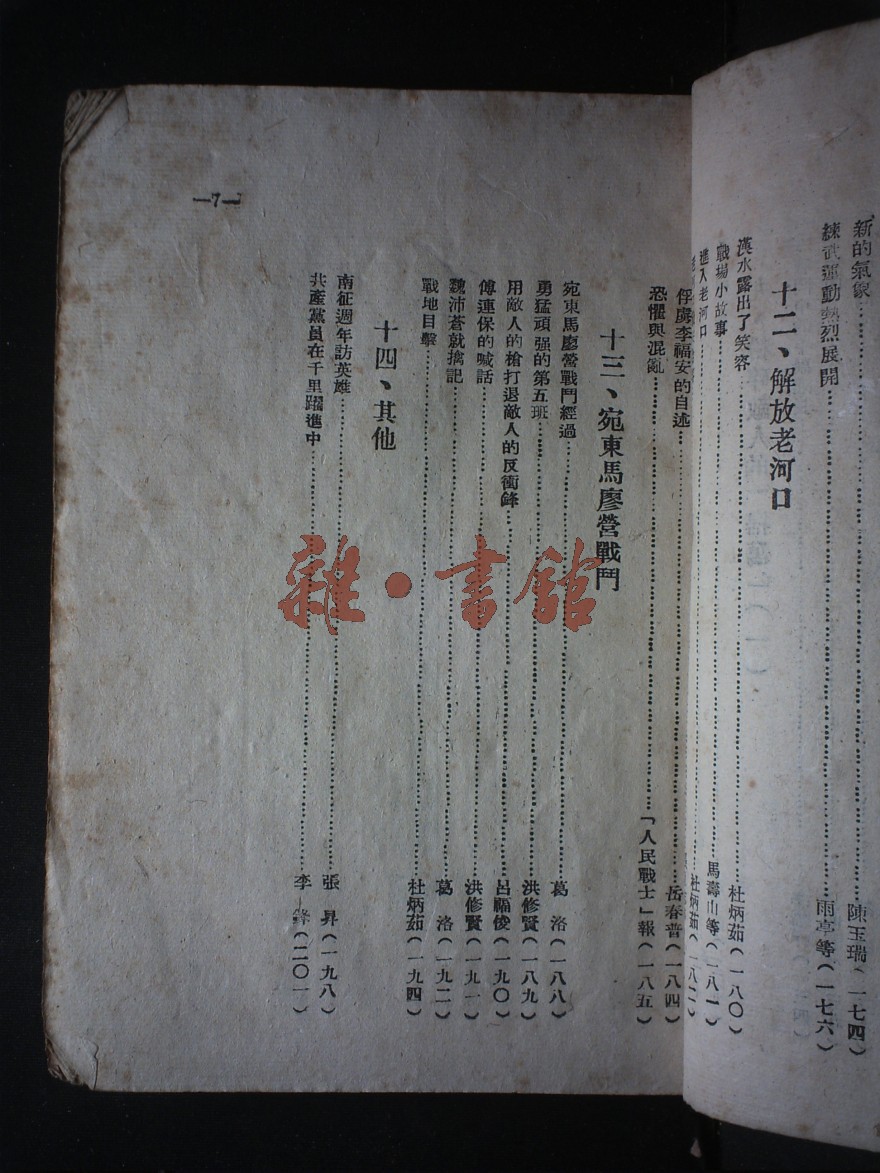 新的氣象……陳玉瑞（一七四）
練武運動熱烈展開……雨亭等（一七六）
十二、解放老河口
漢水露出了笑容……杜炳茹（一八〇）
戰場小故事……馬壽山等（一八一）
進入老河口……杜炳茹（一八二）
俘虜李福安的自述……岳春普（一八四）
恐懼與混亂……「人民戰士」報（一八五）
十三、宛東馬廖營戰鬥
宛東馬廖營戰鬥經過……葛洛（一八八）
勇猛頑强的第五班……洪修賢（一八九）
用敵人的槍打退敵人的反衝鋒……呂福俊（一九〇）
傅連保的喊話……洪修賢（一九一）
魏沛蒼就擒記……葛洛（一九二）
戰地目擊……杜炳茹（一九四）
十四、其他
南征週年訪英雄……張昇（一九八）
共產黨員在千里躍進中……李（二〇一）
—7—
雜·書館